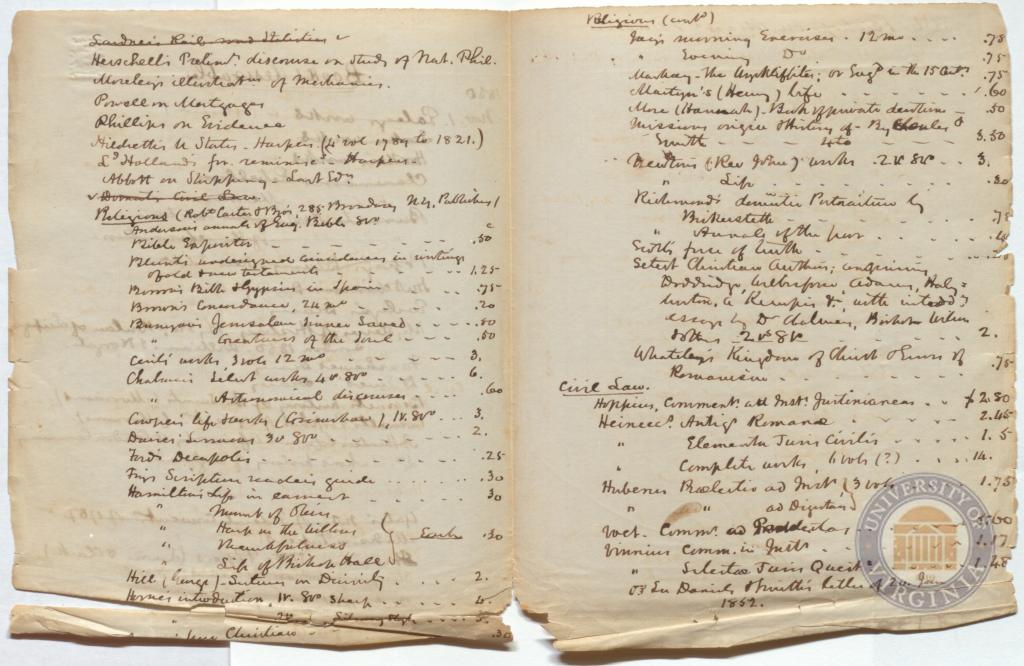 Lardner's Rail road Statistics
Herschell's Prelim. discourse on Study of Nat. Phil.
Moseley's illustrations of Mechanics.
Powell on Mortgages
Phillips on Evidence
Hildreth's U States - Harpers (4 vol 1789 to 1821.)
Ld Holland's for. reminisc. - Harpers.
Abbott on Shipping - Last Edn
Domat's Civil Law
Religious (Robt Carter & Bros, 285 Broadway N.Y. Publishers)
Anderson's annals of Eng. Bible 8vo
Bible Expositor .50
Blunt's undesigned coincidences in writings
of old & new testaments 1.25
Borrow's Bible & Gypsies in Spain .75
Brown's Concordance, 24mo .20
Bunyan's Jerusalem Sinner Saved .50
" Greatness of the Soul .50
Cecil's works 3 vols 12mo 3.
Chalmers Select works 4v 8vo 6.
" Astronomical discourses .60
Cowper's life & works (Grimshaw), 1v. 8vo 3.
Davies' Sermons 3v 8vo 2.
Ford's Decapolis .25
Frys Scripture readers guide .30
Hamilton's Life in earnest .30
" Mount of Olives
" Harp on the willows
" Thankfulness
" Life of Bishop Hall
Each .30
Hill (George) - Lectures on Divinity 2.
Horne's introduction, 1v. 8vo sheep 4.
2v 5.
Christian .30
Religious (contd)
Jay's morning Exercises - 12mo .75
" Evening Do .75
Mackay - The Wyckliffites; or Engd in the 15 Cent. .75
Martyn's (Henry) life .60
More (Hannah) - Book of private devotion .50
Missions origin & History of - By Charles
Smith 4to 3.50
Newton's (Rev John) works - 2v 8vo 3.
" Life .30
Richmond's domestic Portraiture by
Bickersteth .75
" Annals of the poor
Scott's force of truth
Select Christian Authors; comprising
Doddridge, Wilberforce, Adams, Haly-
burton, a Kempis &c, with intrody
essays by Dr Chalmers, Bishop Wilson
& others 2v 8vo 2.
Whateley's Kingdom of Christ & Errors of
Romanism .75
Civil Law.
Hoppius, Comment. ad Inst. Justinianeas $2.80
Heinecc. Antiq. Romanae 2.45
" Elementa Juris Civilis 1.5
" Complete works, 6 vols (?) 14.
Huberus Praelectio ad Inst } 3 vols 1.75
" " ad Digestas
Voet. Comm. ad Pandectas 5.60
Vinnius Comm. in Inst. 1.17
" Selectae Juris Quest 1.48
Daniels & Smith's letter
1852.
UNIVERSITY OF VIRGINIA